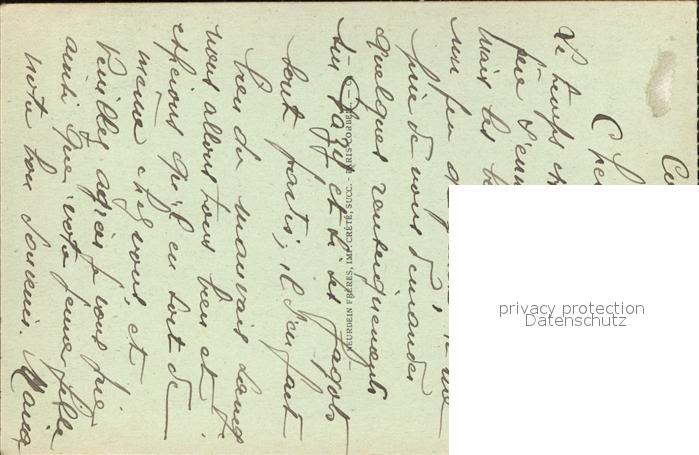 C
Cher
Le temps ch
père s'enn
Mais les be
un peu de
prie de vous demander
quelques renseignements
sur et si les fagots
sont partis, il s'en fait
bien du mauvais sang
nous allons tous bien et j'
espérons qu'il en soit de
même chez vous, et
Veuillez agréer je vous prie
ainsi que votre jeune fille
notre bon souvenir. Maria
NEURDEIN FRÈRES, IMP. CRÉTÉ, SUCC. - PARIS-CORBEIL
privacy protection
Datenschutz